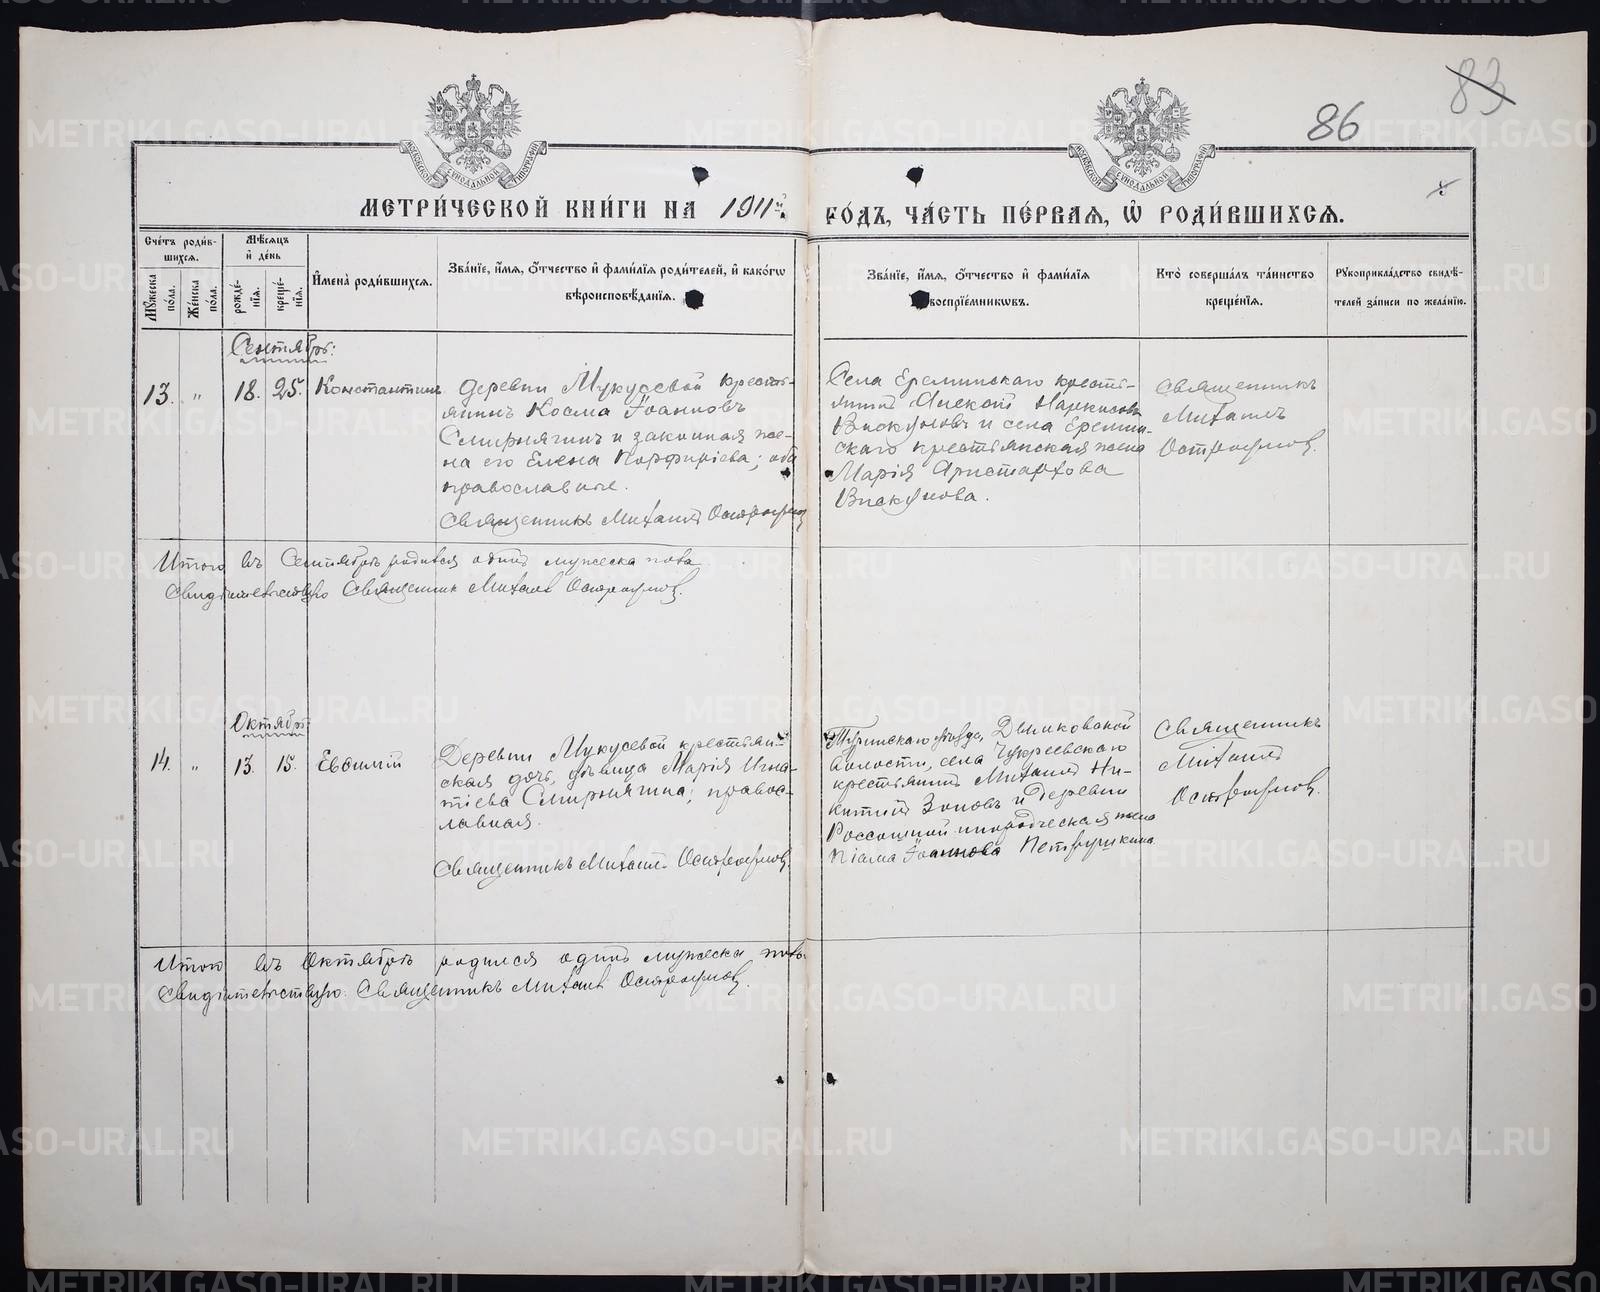 86
83
МОСКОВСКОЙ СѴНОДАЛЬНОЙ ТИПОГРАФІИ
МОСКОВСКОЙ СѴНОДАЛЬНОЙ ТИПОГРАФІИ
МЕТРИ́ЧЕСКОЙ КНИ́ГИ НА 1911й
ГО́ДЪ, ЧА́СТЬ ПЕ́РВАЯ, Ѡ҆ РОДИ́ВШИХСЯ.
Сче́тъ роди́в-
шихся.
Мѣ́сяцъ
и҆ де́нь
Мꙋ́жеска
по́ла.
Же́нска
по́ла.
рожде-
нїя.
креще́-
нїя.
И҆мена̀ роди́вшихся.
Зва́нїе, и҆́мя, ѻ҆́тчество и҆ фамї́лїя роди́телей, и҆ како́гѡ
вѣроисповѣ́данїя.
Зва́нїе, и҆́мя, ѻ҆́тчество и҆ фамї́лїя
воспрїе́мниковъ.
Кто̀ соверша́лъ та́инство
креще́нїя.
Рꙋкоприкла́дство свидѣ́-
телей за́писи по жела́нїю.
Сентябрь:
13. „ 18. 25. Константинъ
деревни Мукусевой кресть-
янинъ Косма Іоанновъ
Смирнягинъ и законная же-
на его Елена Порфиріева; оба
православные.
Священникъ Михаилъ Остроумов
Села Ереминскаго кресть-
янинъ Алексій Наркисовъ
Вискуновъ и села Еремин-
скаго крестьянская жена
Марія Аристархова
Вискунова.
Священникъ
Михаилъ
Остроумов.
Итого въ Сентябрѣ родился одинъ мужеска пола
Свидѣтельствую Священник Михаилъ Остроумов.
Октябрь
14. „ 13. 15. Евѳимій
Деревни Мукусевой крестьян-
ская дочь, дѣвица Марія Игна-
тіева Смирнягина; правос-
лавная.
Священникъ Михаилъ Остроумов.
Туринскаго уѣзда, Дымковской
волости, села Чукреевскаго
крестьянинъ Михаилъ Ни-
китинъ Зоновъ и деревни
Россошной инородческая жена
Піама Іоаннова Петрушкина.
Священникъ
Михаилъ
Остроумов.
Итого въ Октябрѣ родился одинъ мужеска полъ.
Свидѣтельствую: Священникъ Михаилъ Остроумов.
METRIKI.GASO-URAL.RU